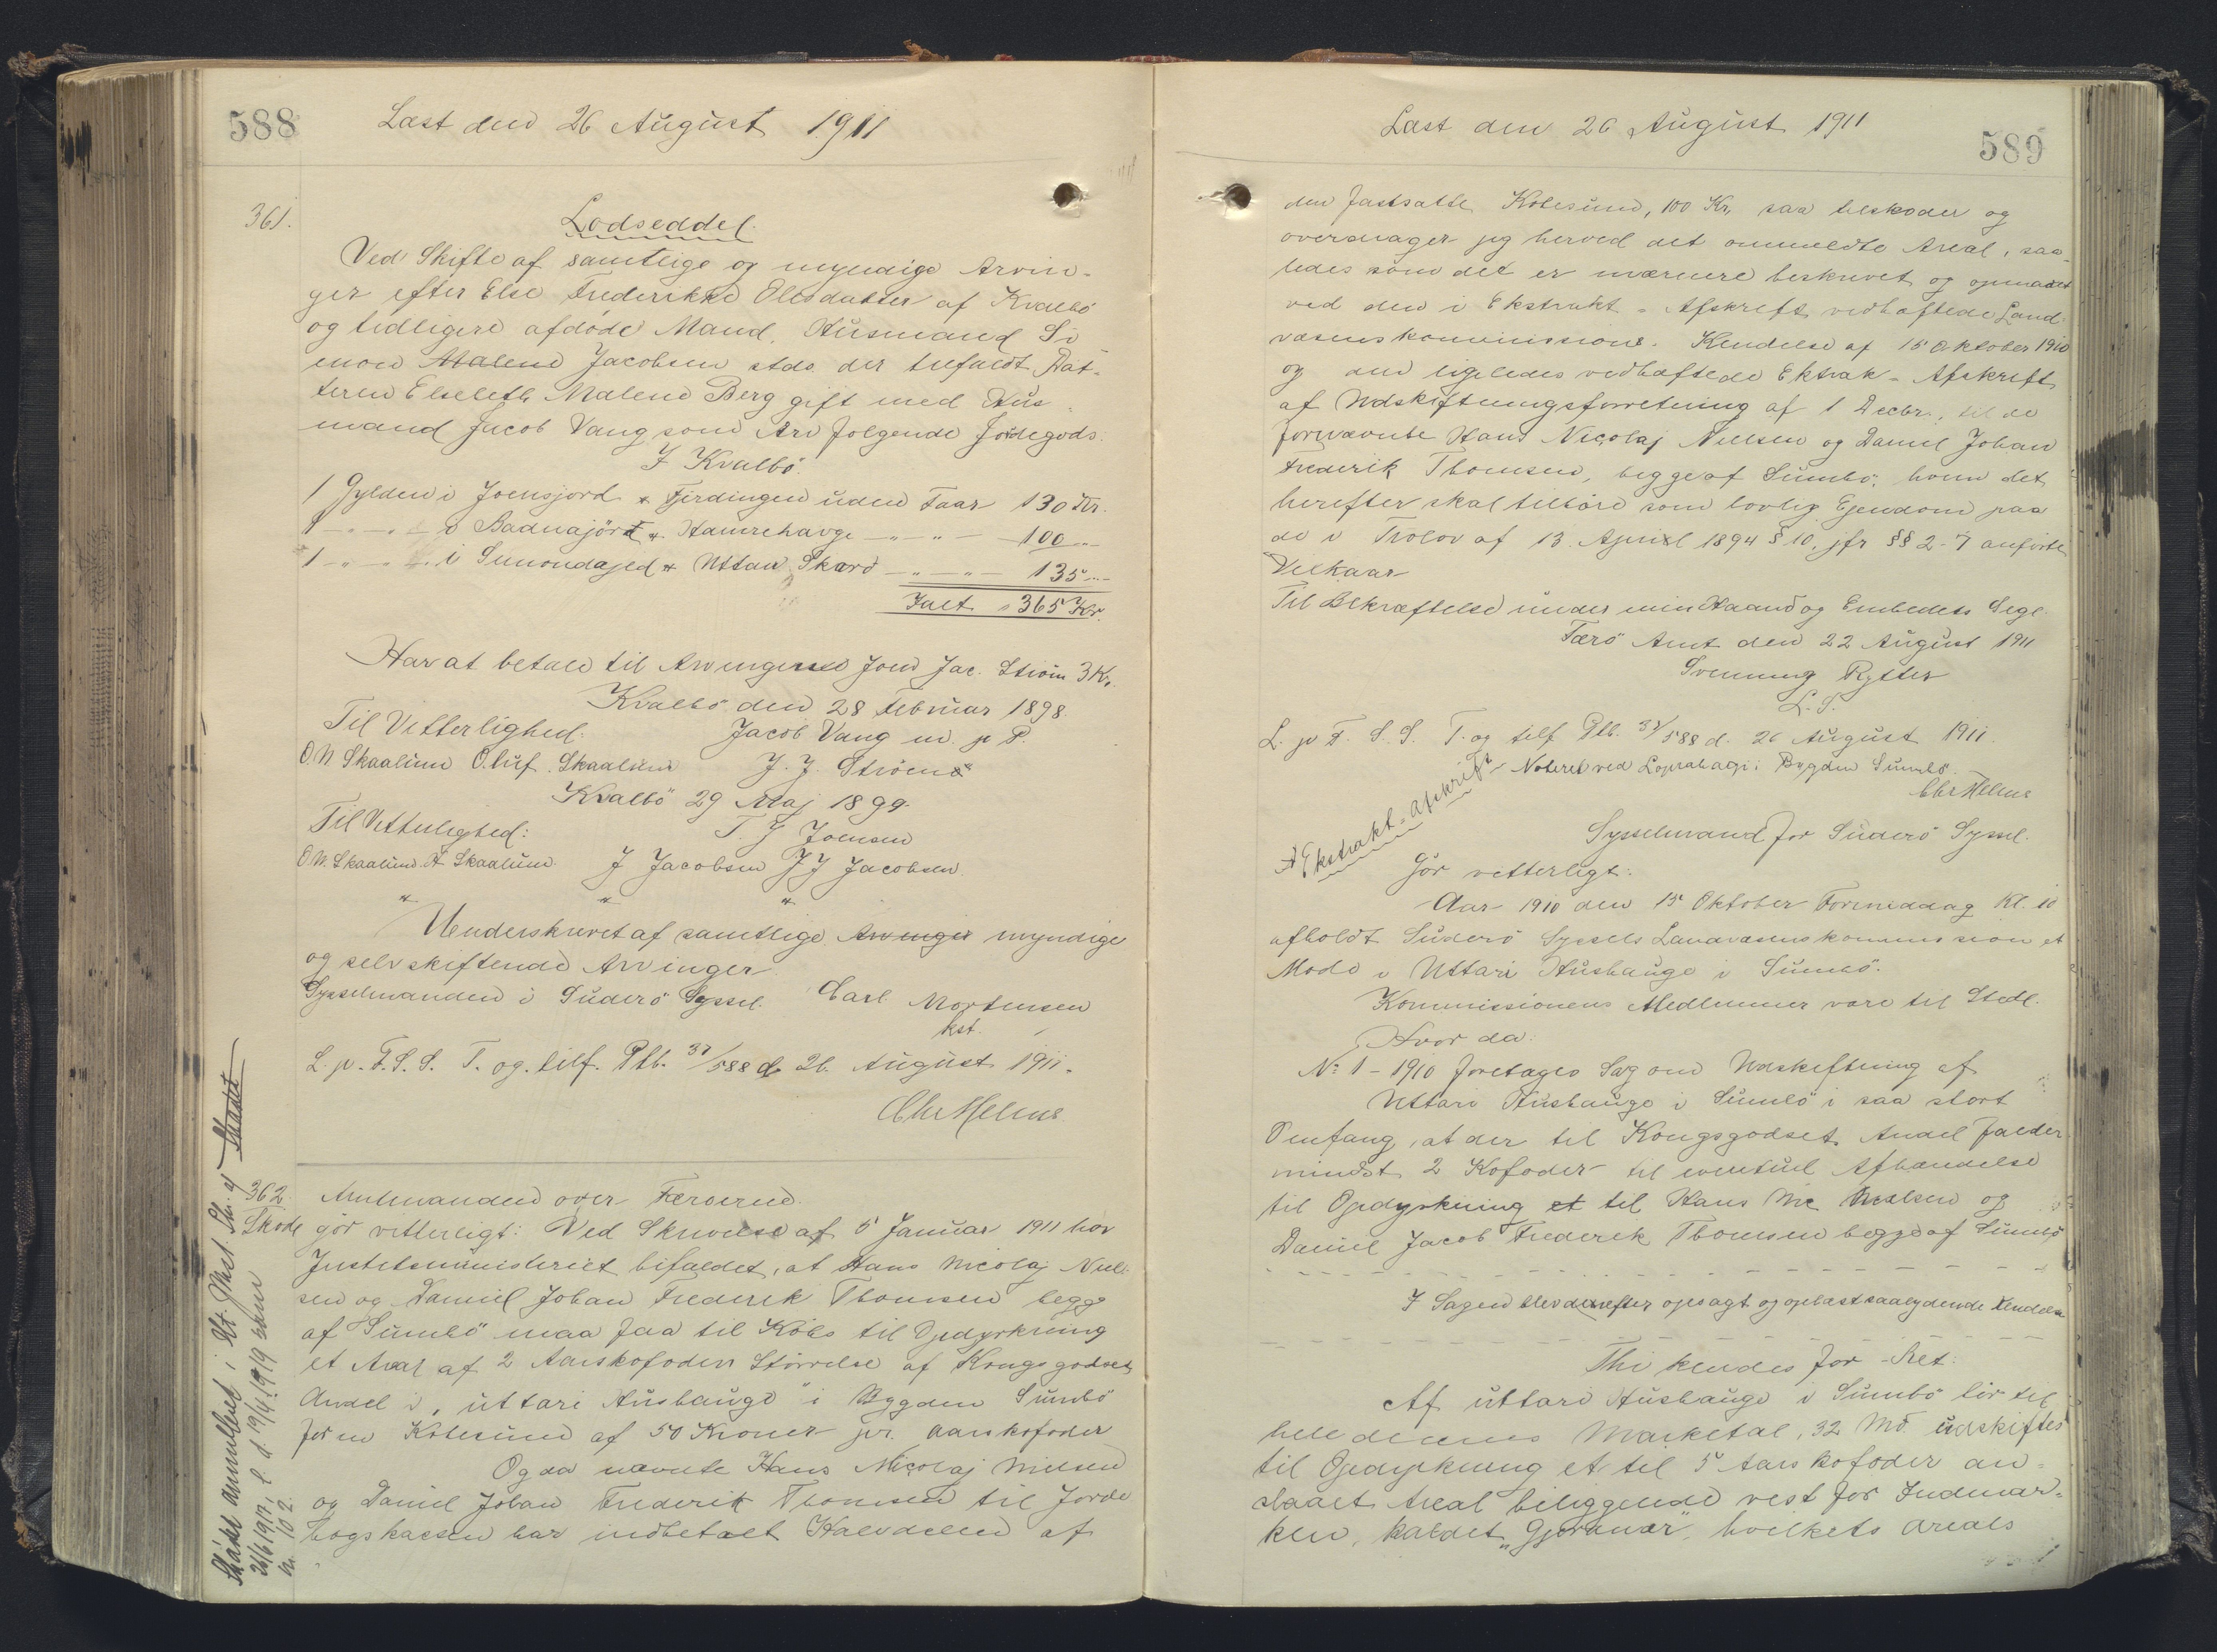 588
Læst den 26 August 1911
361.
Lodseddel.
Ved Skifte af samtlige og myndige Arvin-
ger efter Else Frederikke Olesdatter af Kvalbö
og tidligere afdöde Mand, Husmand Si
mon Malene Jacobsen stds. der tilfaldt Dat-
teren Elseleth Malene Berg gift med Hus-
mand Jacob Vang som Arv følgende Jordegods.
I Kvalbö.
1 Gylden i Joensjord & Fjirdingen uden Faar 130 Kr.
1 -"- i Badnajörd & Hamrehavge -"- -"- 100 "
1 -"- i Simondajed & Uttan Skard -"- -"- 135 "
Ialt 365 Kr.
Har at betale til Arvingerne Joen Jac. Ström 3 Kr.
Kvalbö den 28 Februar 1898.
Til Vitterlighed: Jacob Vang m. p. P.
O. N. Skaalum Oluf Skaalum J. J. Ström
Kvalbö 29 Maj 1899.
Til Vitterlighed: T. J Joensen
O. N. Skaalum H Skaalum J Jacobsen J J Jacobsen.
" " "
Underskrevet af samtlige Arvinger myndige
og selvskiftende Arvinger.
Sysselmanden i Suderö Syssel. Carl Mortensen
kst.
L. p. F. S. S. T. og tilf. Ptb. 37/588 d. 26. August 1911.
Chr Helms.
362.
Skøde
Amtmanden over Færoerne
gör vitterligt: Ved Skrivelse af 5 Januar 1911 har
Justitsministeriet bifaldet, at Hans Nicolaj Niel-
sen og Daniel Johan Frederik Thomsen begge
af Sumbö maa faa til Köbs til Opdyrkning
et Areal af 2 Aarskofoders Störrelse af Kongsgodsets
Andel i "uttari Husbauge" i Bygden Sumbö
for en Köbesum af 50 Kroner pr. Aarskofoder
Og da nævnte Hans Nicolaj Nielsen
og Daniel Johan Frederik Thomsen til Jorde
bogskassen har indbetalt Halvdelen af
Læst den 26 August 1911
589
den fastsatte Köbesum, 100 Kr., saa tilskøder og
overdrager jeg herved det ommeldte Areal, saa-
ledes som det er nærmere beskrevet og opmaalt
ved den i Ekstrakt-Afskrift vedhæftede Land-
væsenskommissions-Kendelse af 15 Oktober 1910
og den ligeledes vedhæftede Ektrak-Afskrift
af Udskiftningsforretning af 1 Decbr., til de
fornævnte Hans Nicolaj Nielsen og Daniel Johan
Frederik Thomsen, begge af Sumbö, hvem det
herefter skal tilhöre som lovlig Ejendom paa
de i Prolov af 13. April 1894 § 10, jfr §§ 2-7 anförte
Vilkaar
Til Bekræftelse under min Haand og Embedets Segl.
Færö Amt den 22 August 1911
Svenning Rytter
L. S.
L. p. F. S. S. T. og tilf. Ptb. 37/588 d. 26 August 1911.
Noteret ved Loprahagi i Bygden Sumbö.
Chr Helms
Ekstrakt-Afskrift
Sysselmand for Suderö Syssel.
Gör vitterligt:
Aar 1910 den 15 Oktober Formiddag Kl. 10
afholdt Suderö Syssels Landvæsenskommission et
Möde i Uttari Husbauge i Sumbö.
Kommissionens Medlemmer vare til Stede.
Hvor da:
No. 1 - 1910 foretages Sag om Udskiftning af
Uttari Husbauge i Sumbö i saa stort
Omfang, at der til Kongsgodsets Andel falder
mindst 2 Kofoder til eventuel Afhændelse
til Opdyrkning et til Hans Nic Nielsen og
Daniel Jacob Frederik Thomsen begge af Sumbö
I Sagen blev derefter opsagt og oplæst saalydende Kendelse
Thi kendes for Ret:
Af uttari Husbauge i Sumbö bör til
hele dennes Marketal, 32 Mk. udskiftes
til Opdyrkning et til 5 Aarskofoder an-
slaaet Areal beliggende vest for Indmar-
ken, kaldet "Gjoranar", hvilkets Areals